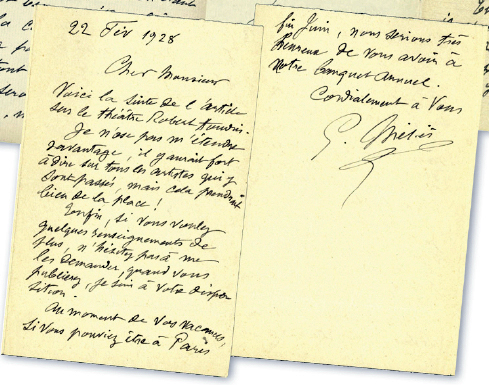 22 Fév 1928
Cher Monsieur
Voici la suite de l'article
sur le théâtre Robert Houdin.
Je n'ose pas m'étendre
davantage, il y aurait fort
à dire sur tous les artistes qui y
sont passés, mais cela prendrait
bien de la place!
Enfin, si vous voulez
quelques renseignements de
plus, n'hésitez pas à me
les demander, quand vous
publierez, je suis à votre dispo
sition.
Au moment de vos vacances,
si vous pouviez être à Paris
fin Juin, nous serions très
heureux de vous avoir à
notre banquet Annuel.
Cordialement à Vous
G. Méliès